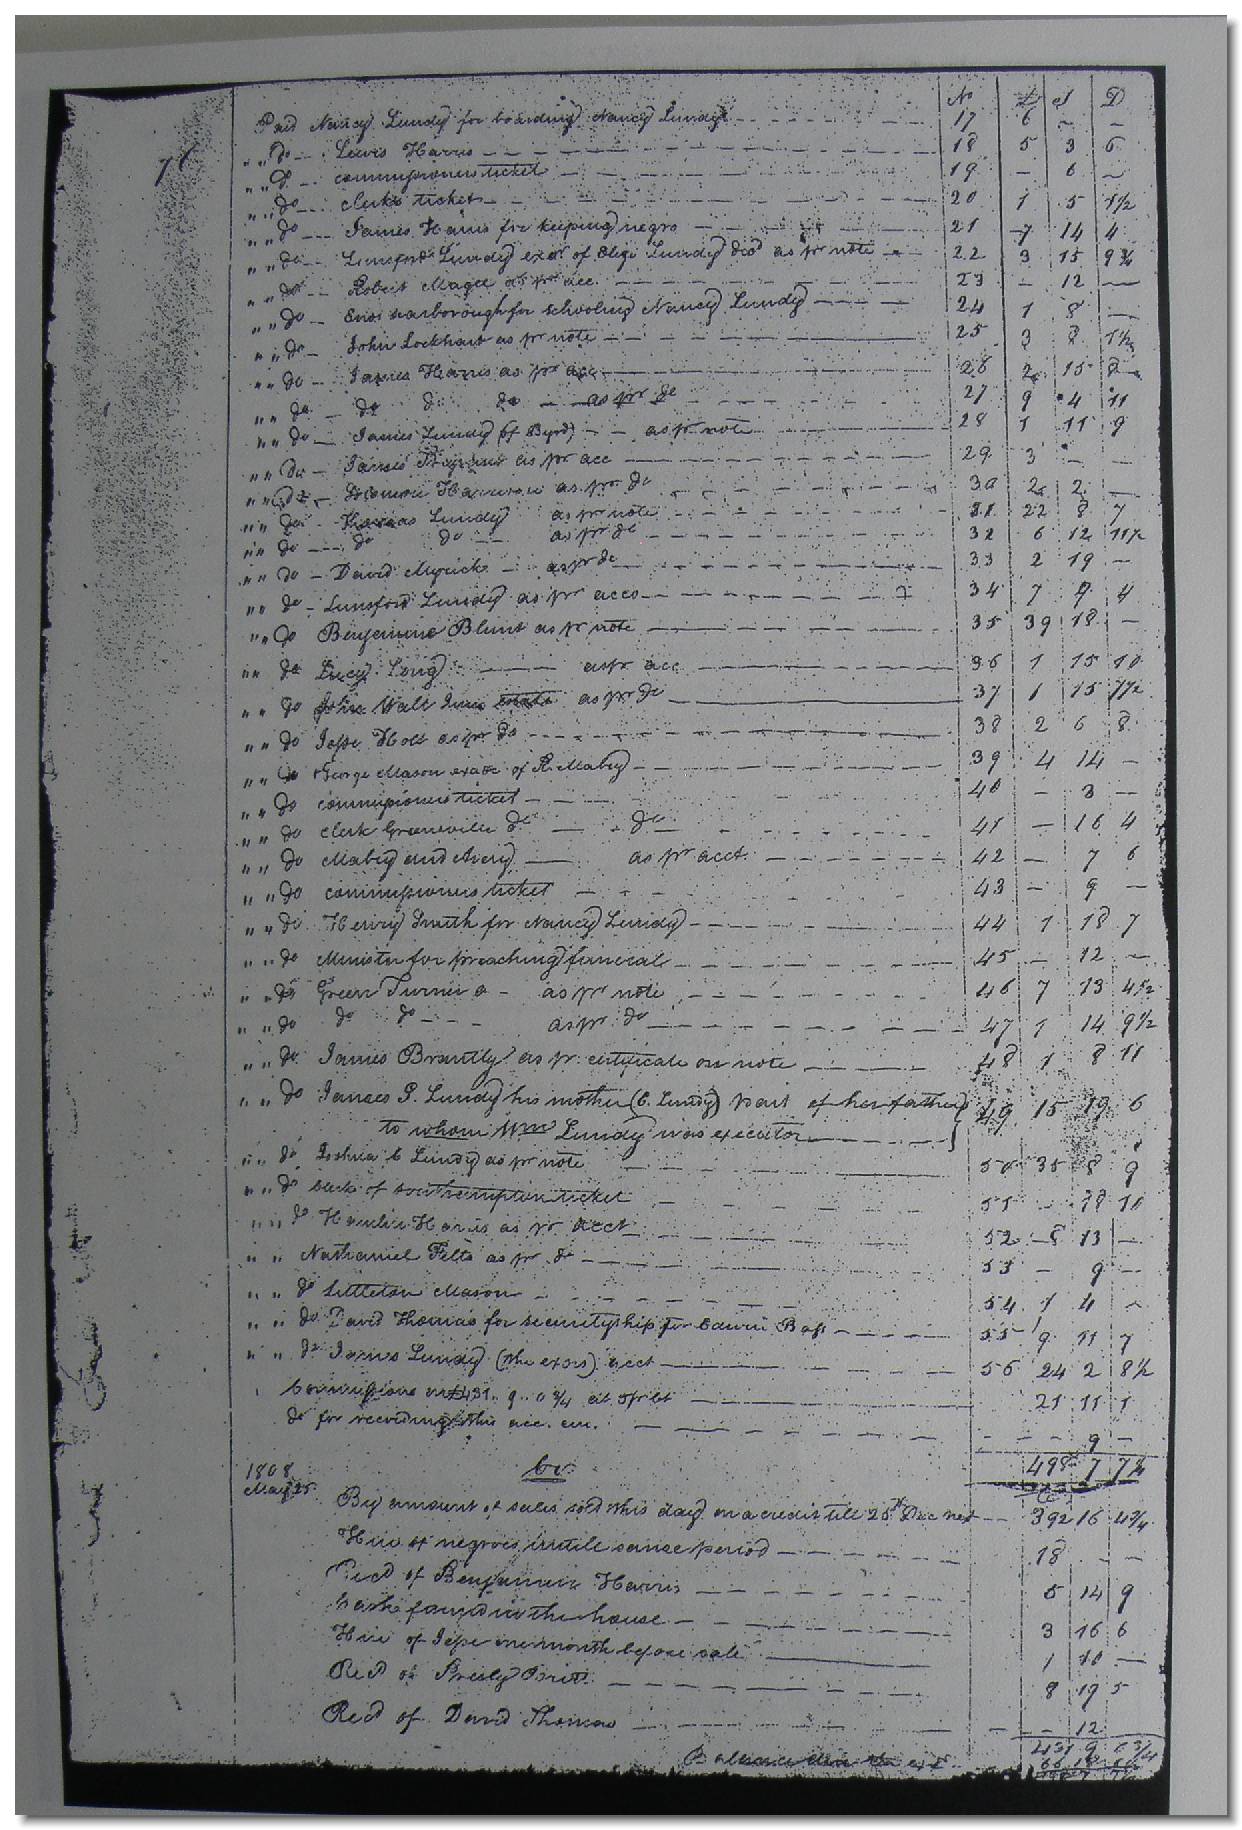 No £ S D
Paid Nancy Lundy for boarding Nancy Lundy 17 6 - -
" " do Lewis Harris 18 5 3 6
" " do commissioners ticket 19 - 6 -
" " do clerks ticket 20 1 5 1½
" " do James Harris for keeping negro 21 7 14 4
" " do Lunsford Lundy exor of Lundy decd as pr note 22 3 15 9¾
" " do Robert Magee as pr acc 23 - 12 -
" " do for schooling Nancy Lundy 24 1 8 -
" " do John Lockhart as pr note 25 3 8 1½
" " do James Harris as pr acc 26 2 15 8
" " do do do do as pr do 27 9 4 11
" " do James Lundy (of Byrd) as pr note 28 1 11 9
" " do James as pr acc 29 3 - -
" " do Harrison as pr do 30 2 2 -
" " do Thomas Lundy as pr note 31 22 8 7
" " do do do as pr do 32 6 12 11½
" " do David Myrick as pr do 33 2 19 -
" " do Lunsford Lundy as pr acco 34 7 9 4
" " do Benjamine Blunt as pr note 35 39 18 -
" " do Lucy Long as pr acc 36 1 15 10
" " do John Walt as pr do 37 1 15 7½
" " do Jesse Holt as pr do 38 2 6 8
" " do George Mason of R. Mabry 39 4 14 -
" " do commissioners ticket 40 - 3 -
" " do clerk Greensville do do 41 - 16 4
" " do Mabry and Avery as pr acct. 42 - 7 6
" " do commissioners ticket 43 - 9 -
" " do Henry Smith for Nancy Lundy 44 1 18 7
" " do Minister for preaching funeral 45 - 12 -
" " do Green Turner as pr note 46 7 13 4½
" " do do do as pr. do 47 1 14 9½
" " do James Brantly as pr. certificate on note 48 1 8 11
" " do James P. Lundy his mother (C. Lundy) part of her father 49 15 19 6
to whom Wm Lundy was executor
" " do Joshua C Lundy as pr note 50 35 8 9
" " do of southampton ticket 51 - 18 10
" " do Hamlin Harris as pr acct 52 8 13 -
" " Nathaniel Felts as pr do 53 - 9 -
" " do Littleton Mason 54 1 4 -
" " do David Thomas for securityship for Edwin Bass 55 9 11 7
" " do James Lundy (the exors) acct 56 24 2 8½
Commissions on £431.. 9.. 0¾ at 5 pr ct 21 11 1
do for recording this acc. 9 -
498 7 7¼
1808
May 25
Cr
By amount of sales sold this day on a credit till 25th Dec next 392 16 4¾
Hire of negroes untill same period 18 - -
Recd of Benjamin Harris 5 14 9
Cash found in the house 3 16 6
Hire of Jesse one month before sale 1 10 -
Recd of Britt 8 19 5
Recd of David Thomas - 12
431 9 0¾
Balance due the exr